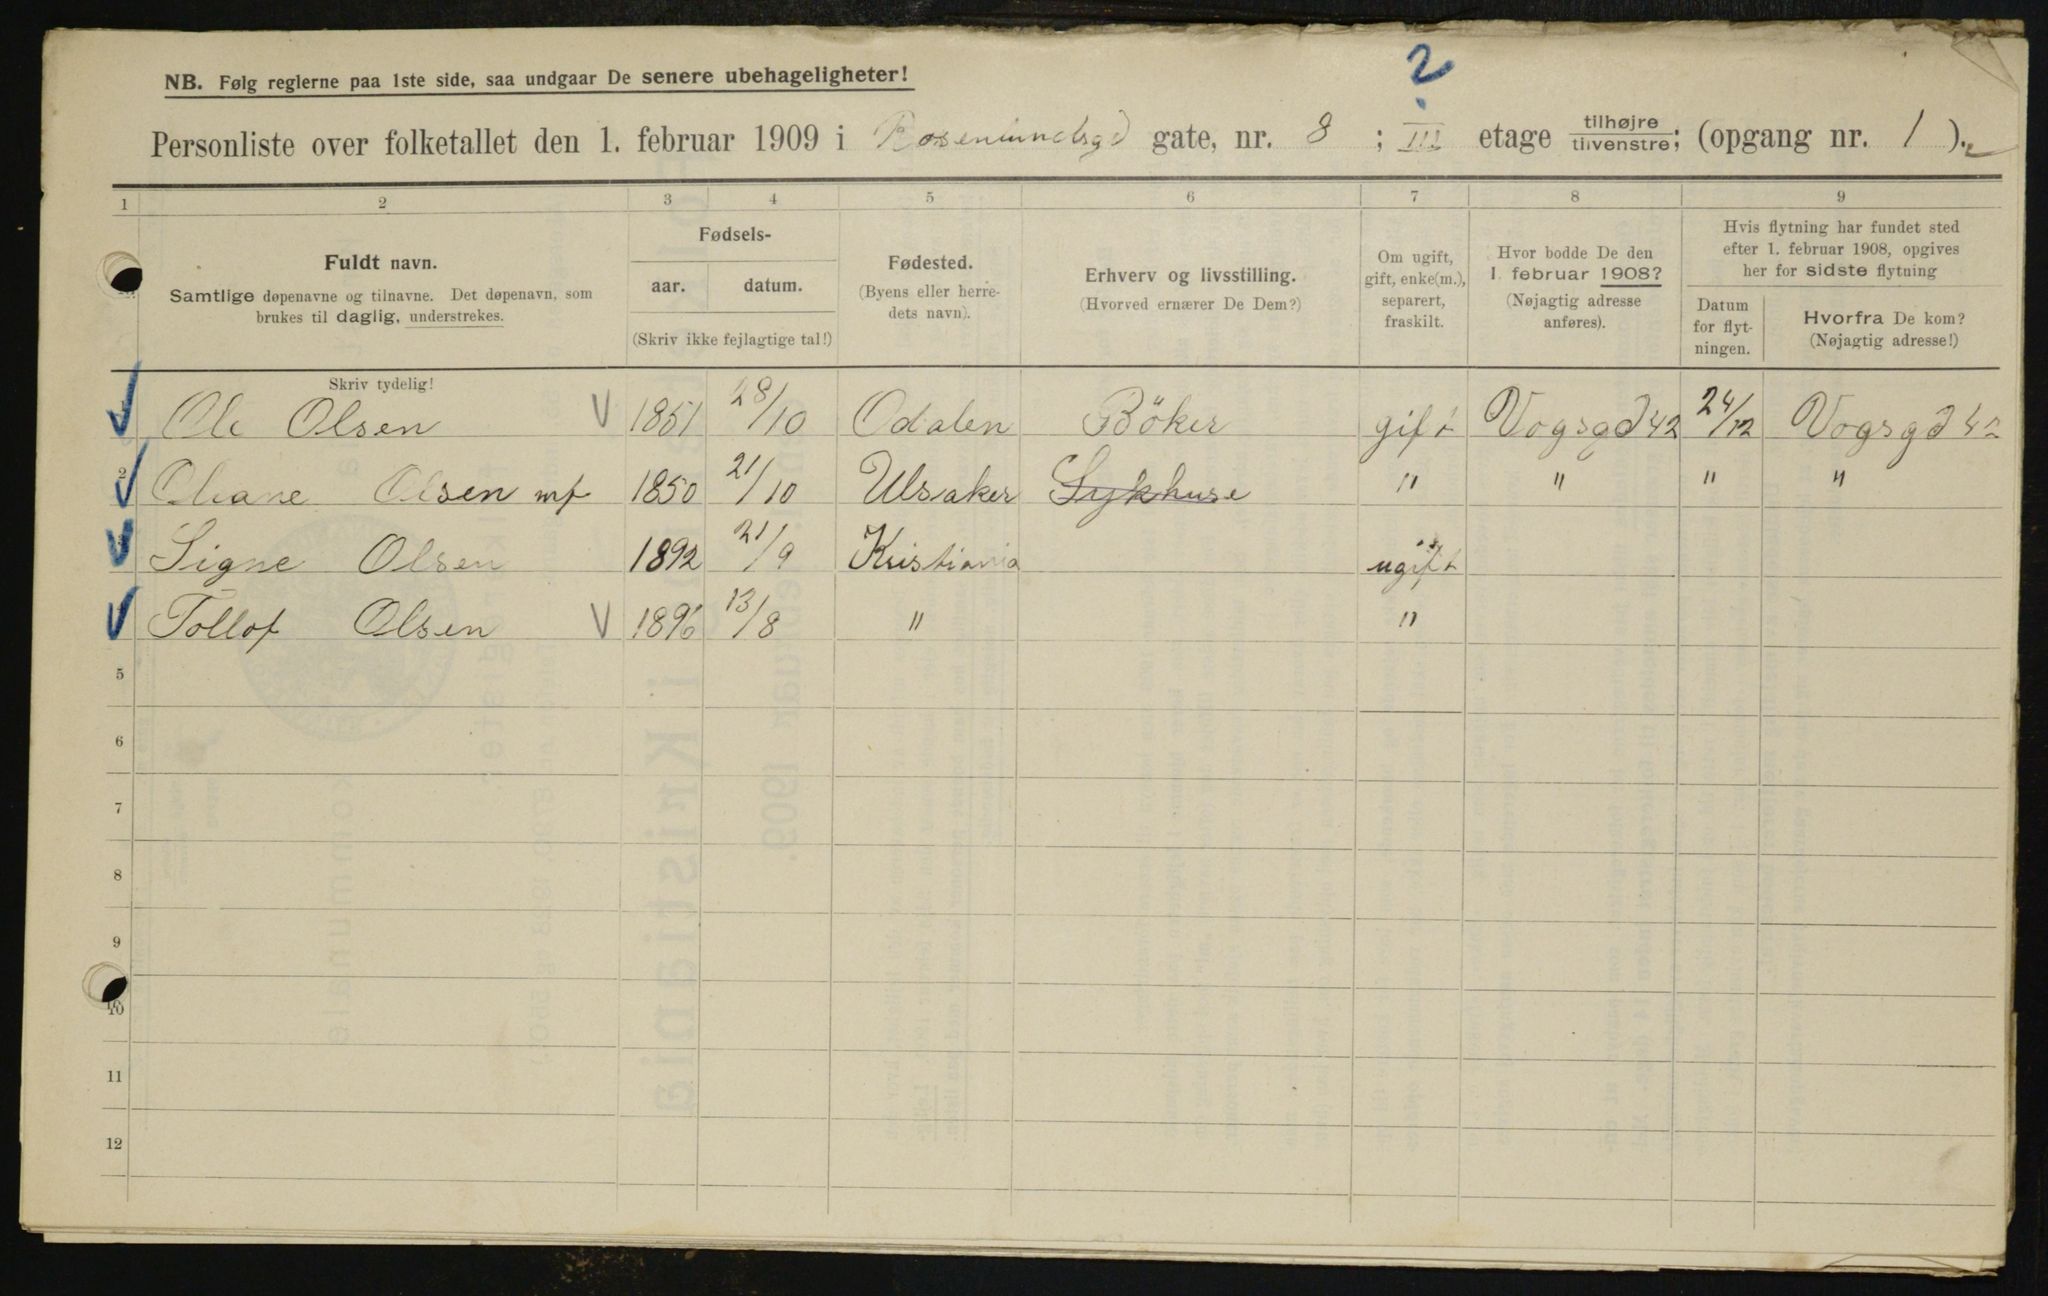 2
NB. Følg reglerne paa 1ste side, saa undgaar De senere ubehageligheter!
Personliste over folketallet den 1. februar 1909 i Rosenlundsgd gate, nr. 8 ; III etage tilhøjre tilvenstre; (opgang nr. 1 ).
1 2 3 4 5 6 7 8 9
Fuldt navn.
Samtlige døpenavne og tilnavne. Det døpenavn, som
brukes til daglig, understrekes.
Skriv tydelig!
Fødsels-
aar. datum.
(Skriv ikke fejlagtige tal!)
Fødested.
(Byens eller herre-
dets navn).
Erhverv og livsstilling.
(Hvorved ernærer De Dem?)
Om ugift,
gift, enke(m.),
separert,
fraskilt.
Hvor bodde De den
1. februar 1908?
(Nøjagtig adresse
anføres).
Hvis flytning har fundet sted
efter 1. februar 1908, opgives
her for sidste flytning
Datum
for flyt-
ningen.
Hvorfra De kom?
(Nøjagtig adresse!)
Ole Olsen 1851 28/10 Odalen Böker gift Vogsgd 42 24/12 Vogsgd 42
2 Oliane Olsen 1850 21/10 Ulsaker Sykhuse " " " "
Signe Olsen 1892 21/9 Kristiania ugift
Tollof Olsen 1896 13/8 " "
5
6
7
8
9
10
11
12